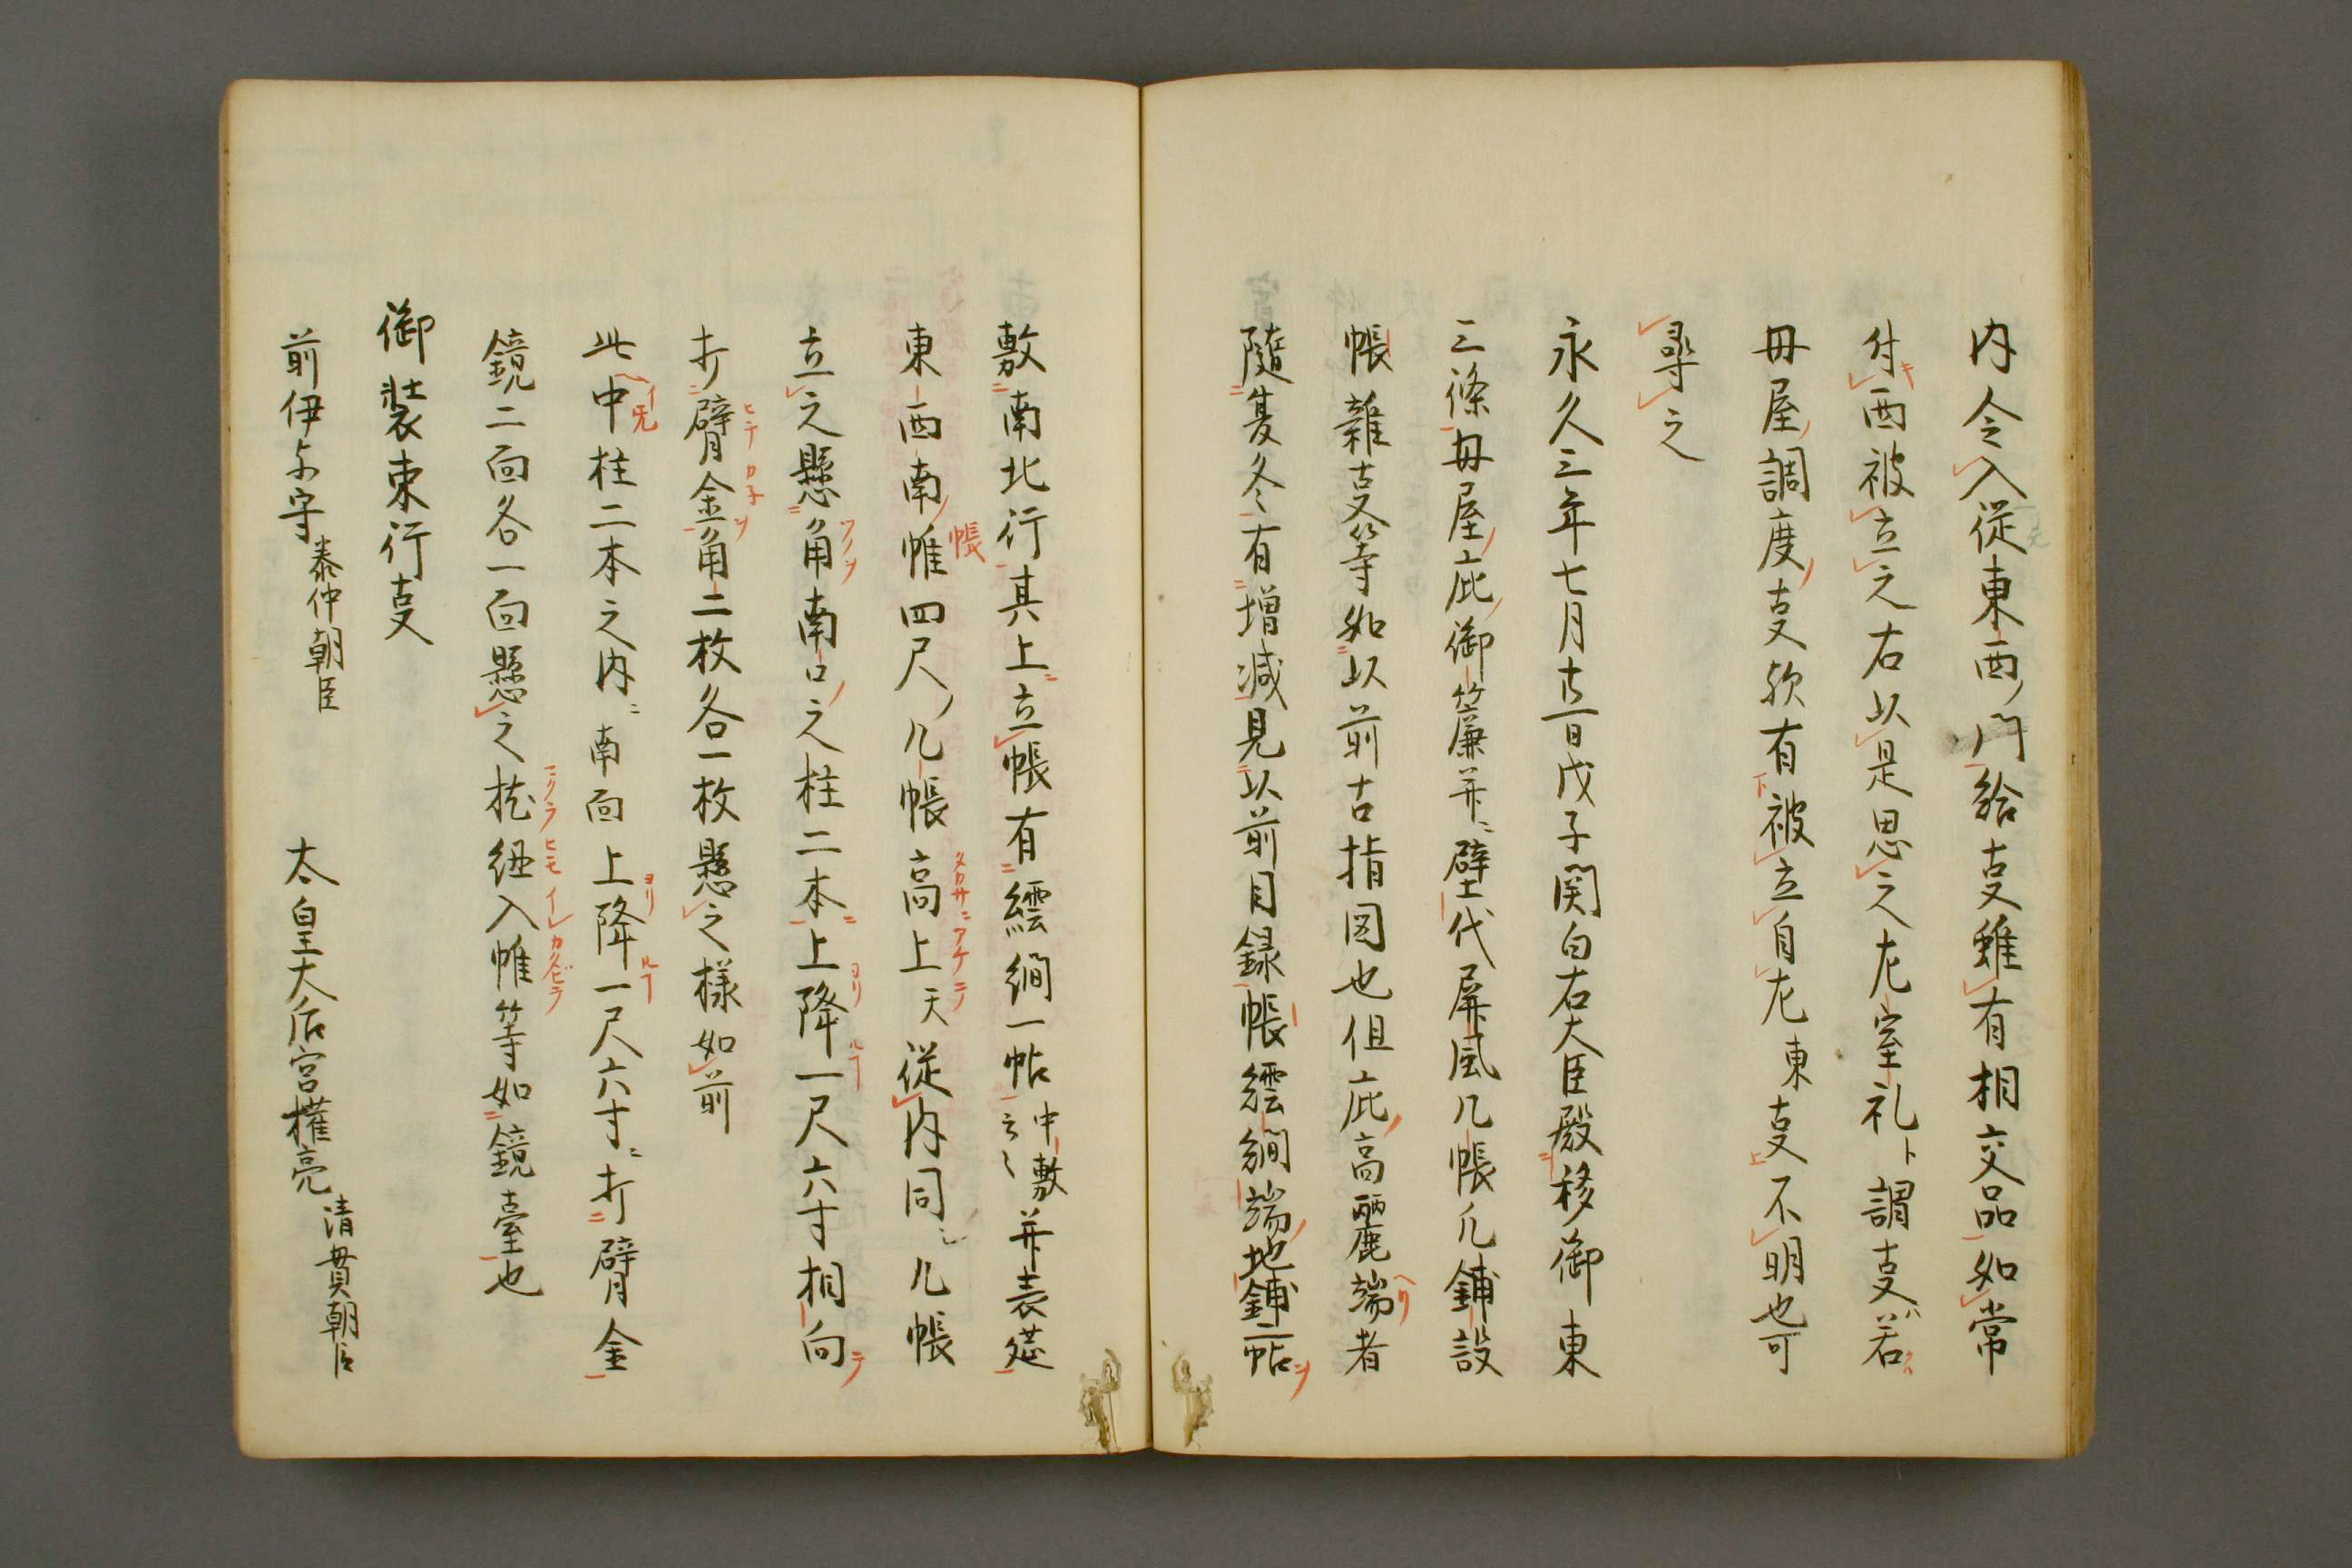 内令入従東西門給㕝雖有相交品如常
付西被立之右以是思之尤室礼ト謂㕝若
毋屋調度㕝欤有被立自尤東㕝不明也可
尋之
永久三年七月廿一日戊子関白右大臣殿移御東
三條毋屋庇御簾并ニ壁代屏風几帳几鋪設
帳雜㕝等如以前古指図也但庇高麗端者
隨夏冬有増減見以前目録帳繧繝端地鋪二帖
敷南北行其上立帳有繧繝一帖中敷云々并表莚
東西南帷四尺几帳高上天従内同几帳
立之懸角南口之柱二本上降一尺六寸相向
打臂金角二枚各一枚懸之様如前
此中柱二本之内ニ南面上降一尺六寸ニ打臂金
鏡二面各一面懸之枕紐入帷等如鏡臺也
御装束行㕝
前伊与守泰仲朝臣　太皇大后宮權亮清貫朝臣